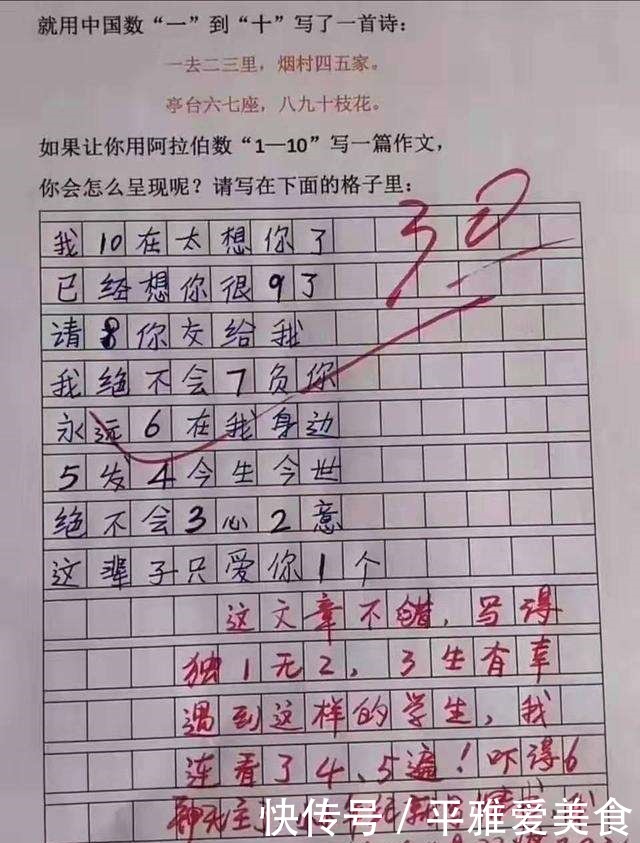 就用中国数“一”到“十”写了一首诗：
一去二三里，烟村四五家。
亭台六七座，八九十枝花。
如果让你用阿拉伯数“1—10”写一篇作文，
你会怎么呈现呢？请写在下面的格子里：
30
我10在太想你了
已经想你很9了
请8你交给我
我绝不会7负你
永远6在我身边
5发4今生今世
绝不会3心2意
这辈子只爱你1个
这文章不错，写得
独1无2，3生有幸
遇到这样的学生，我
连看了4、5遍！吓得6
神无主了
快传号／平雅爱美食